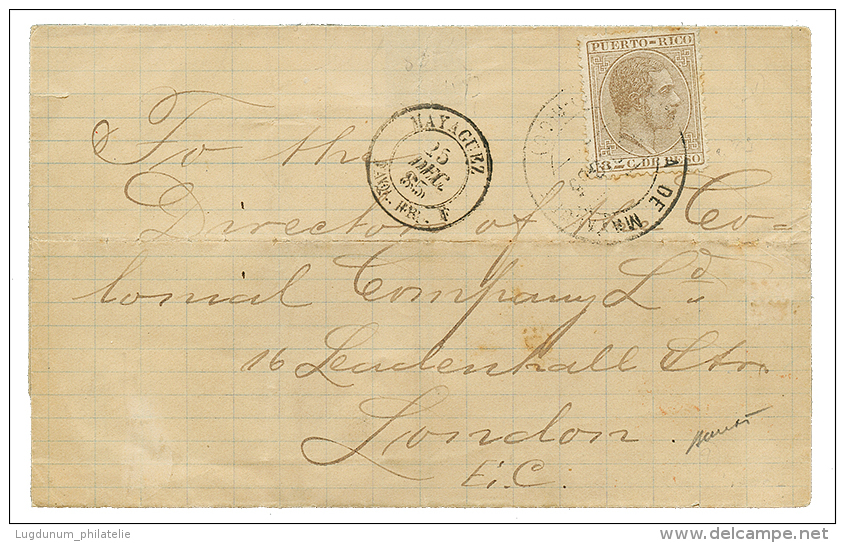 PUERTO-RICO
8 C. DE PESO
MAYAGUEZ
15
DEC
85
DE MA
To the
Director of the Co-
lonial Company Ld
16 Leadenhall Str.
London.
E.C.
Lugdunum_philatelie
delcampe.net